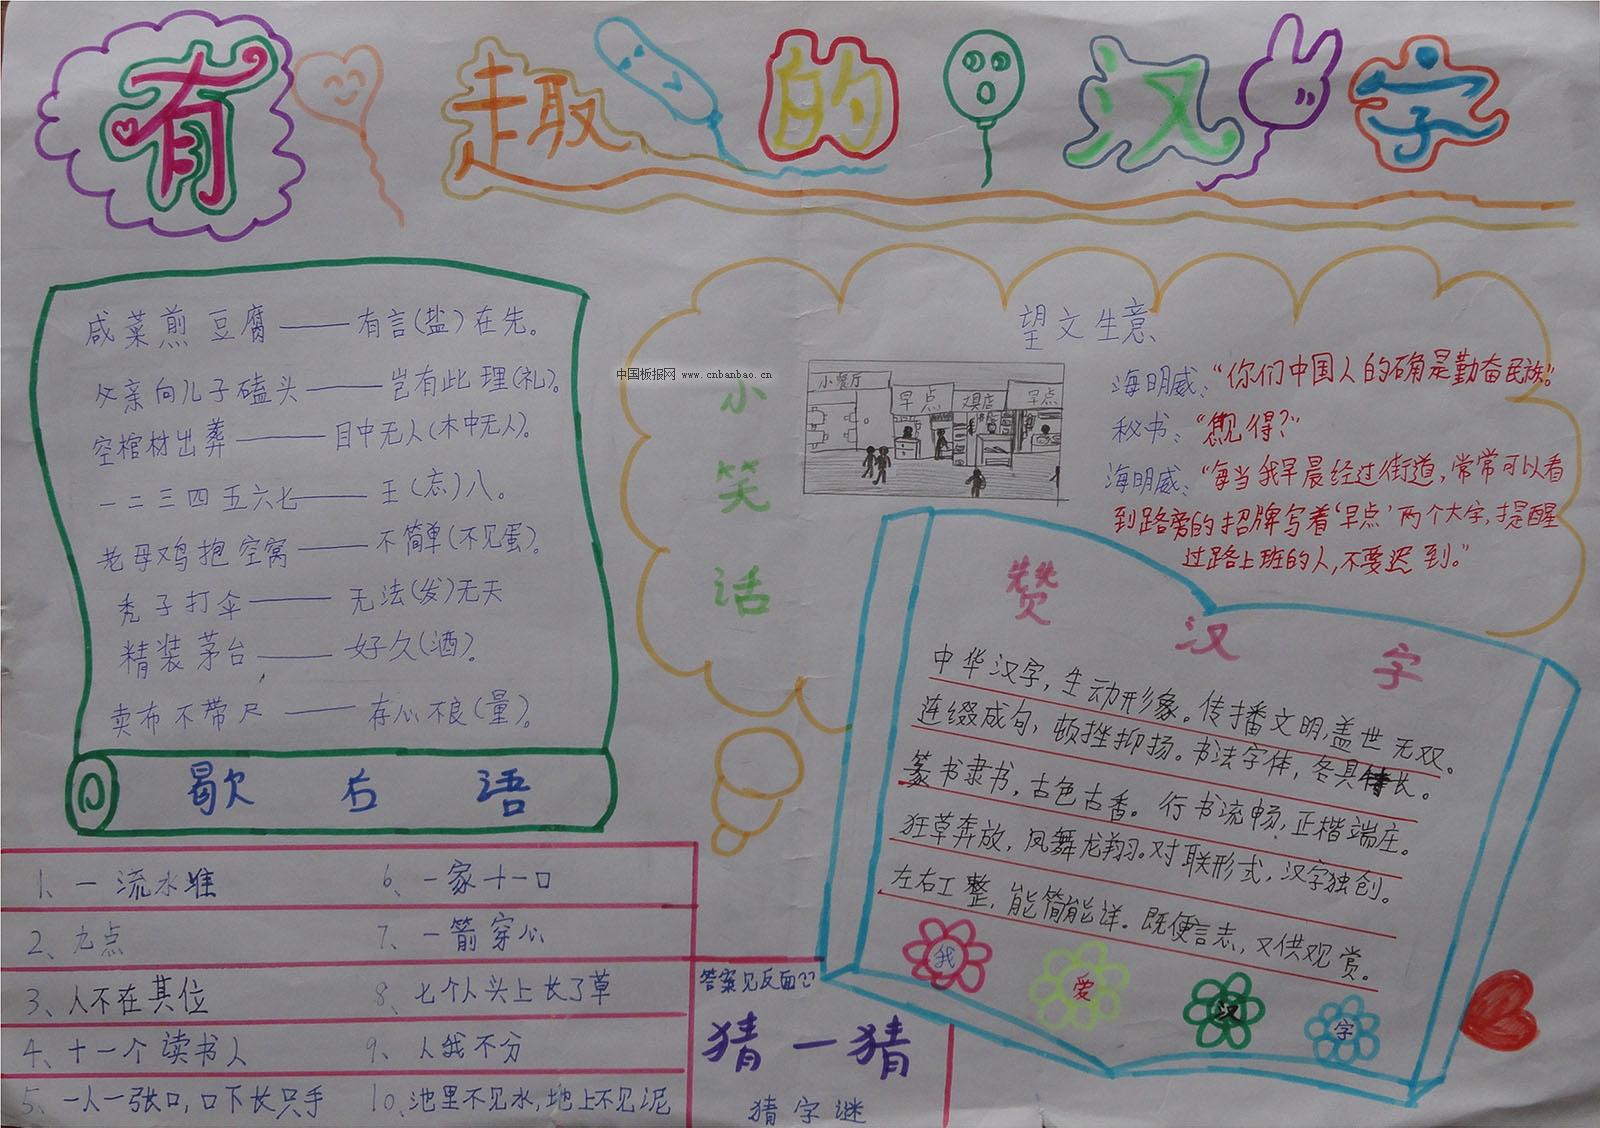 有趣的汉字
咸菜煎豆腐——有言(盐)在先。
父亲向儿子磕头——岂有此理(礼)。
空棺材出葬——目中无人(木中无人)。
一二三四五六七——王(忘)八。
老母鸡抱空窝——不简单(不见蛋)。
秃子打伞——无法(发)无天
精装茅台——好久(酒)。
卖布不带尺——存心不良(量)。
歇右语
中国板报网 www.cnbanbao.cn
小笑话
望文生意、
小餐厅
早点
早点
海明威:“你们中国人的确是勤奋民族”。
秘书:“何以见得?”
海明威:“每当我早晨经过街道,常常可以看
到路旁的招牌写着‘早点’两个大字,提醒
过路上班的人,不要迟到。”
赞汉字
中华汉字,生动形象。传播文明,盖世无双。
连缀成句,顿挫抑扬。书法字体,各具特长。
篆书隶书,古色古香。行书流畅,正楷端庄。
狂草奔放,凤舞龙翔。对联形式,汉字独创。
左右工整,能简能详。既便言志,又供观赏。
我爱汉字
1、一流水准
2、九点
3、人不在其位
4、十一个读书人
5、一人一张口,口下长只手
6、一家十一口
7、一箭穿心
8、七个人头上长了草
9、人我不分
10、池里不见水,地上不见泥
答案见反面
猜一猜
猜字谜